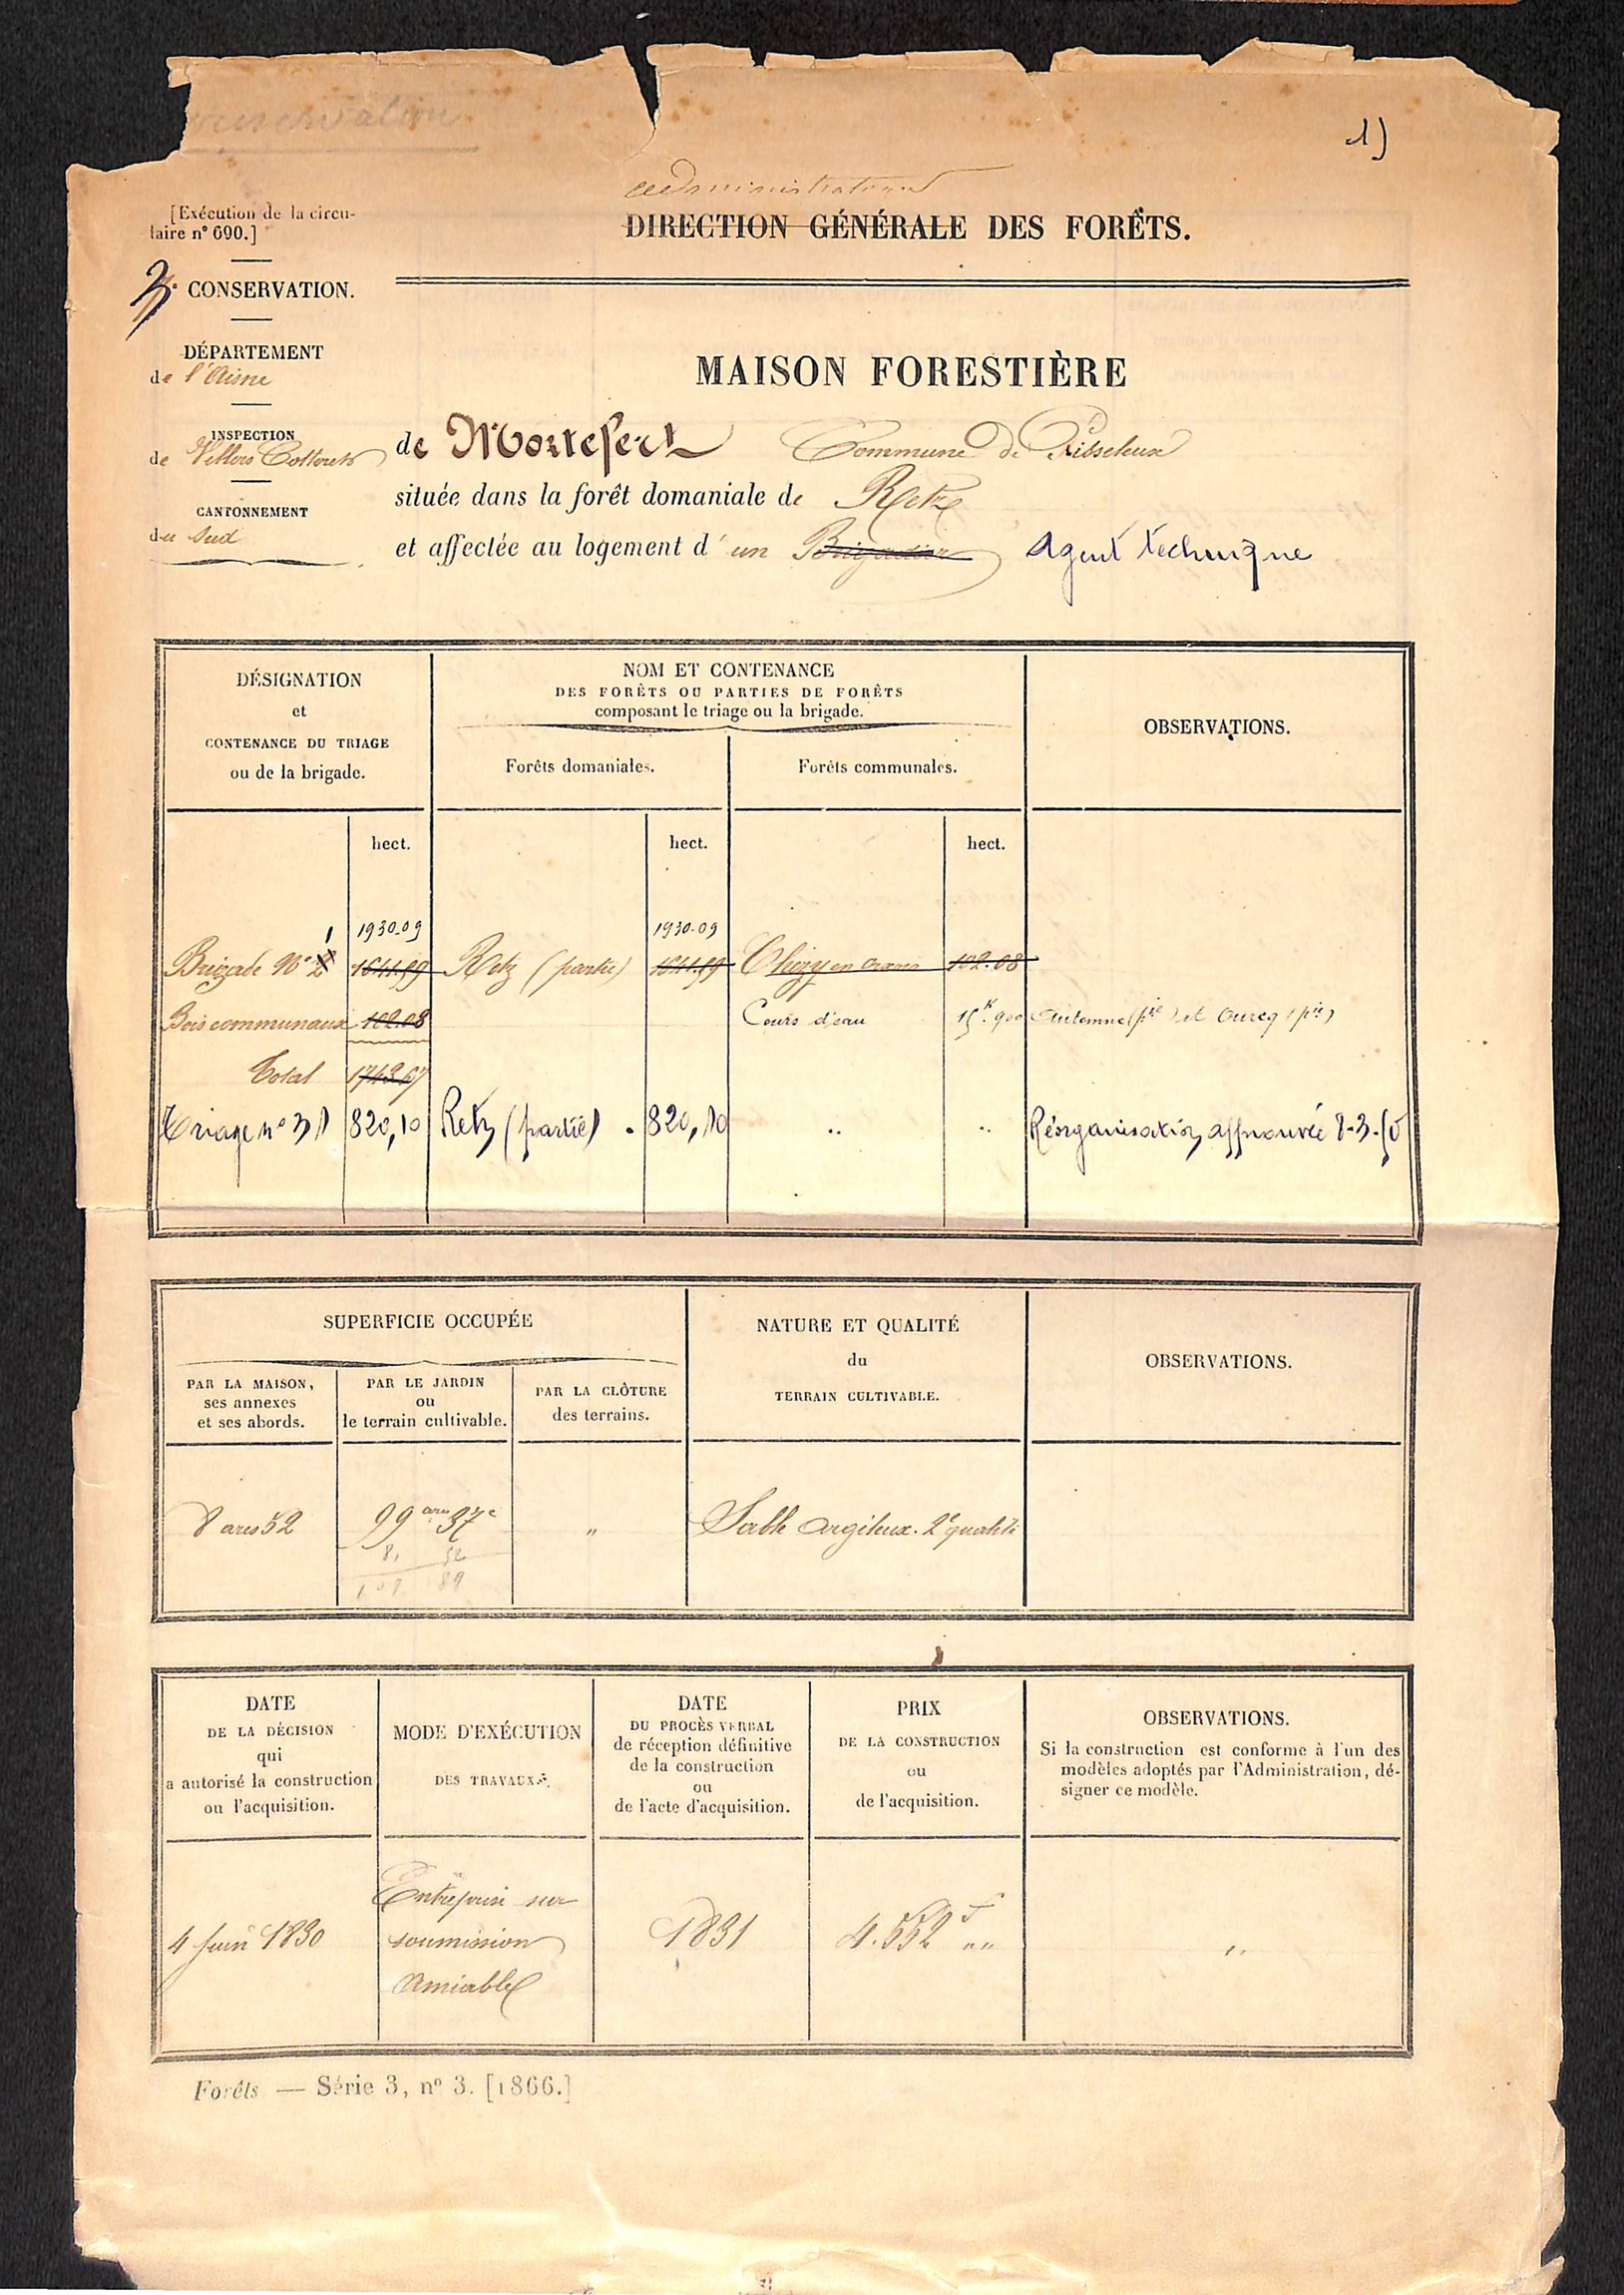 1)
Administration
DIRECTION GÉNÉRALE DES FORÊTS.
[Exécution de la circu-
laire n° 690.]
3e CONSERVATION.
DÉPARTEMENT
de l'Aisne
INSPECTION
de Villers Cotterets
CANTONNEMENT
du Sud
MAISON FORESTIÈRE
de Mortefert Commune de Pisseleux
située dans la forêt domaniale de Retz
et affectée au logement d'un Brigadier Agent technique
DÉSIGNATION
et
CONTENANCE DU TRIAGE
ou de la brigade.
NOM ET CONTENANCE
DES FORÊTS OU PARTIES DE FORÊTS
composant le triage ou la brigade.
Forêts domaniales.
Forêts communales.
OBSERVATIONS.
hect. hect. hect.
1 1930.09 1930.09
Brigade No 2 1641.59 Retz (partie) 1641.59 Chézy en Orxois 102.08
Bois communaux 102.08 Cours d'eau 15k.900 Automne (pie) et Ourcq (pie)
Total 1743.67
Triage n° 31 820,10 Retz (partie) . 820,10 " " Réorganisation approuvée 8-3-50
SUPERFICIE OCCUPÉE
PAR LA MAISON,
ses annexes
et ses abords.
PAR LE JARDIN
ou
le terrain cultivable.
PAR LA CLÔTURE
des terrains.
NATURE ET QUALITÉ
du
TERRAIN CULTIVABLE.
OBSERVATIONS.
8 ares 52 99 ares 37c " Sable argileux. 2e qualité
8, 52
107 89
DATE
DE LA DÉCISION
qui
a autorisé la construction
ou l'acquisition.
MODE D'EXÉCUTION
DES TRAVAUX.
DATE
DU PROCÈS VERBAL
de réception définitive
de la construction
ou
de l'acte d'acquisition.
PRIX
DE LA CONSTRUCTION
ou
de l'acquisition.
OBSERVATIONS.
Si la construction est conforme à l'un des
modèles adoptés par l'Administration, dé-
signer ce modèle.
4 Juin 1830 Entreprise sur soumission amiable 1831 4.552 F "" "
Forêts — Série 3, n° 3. [1866.]